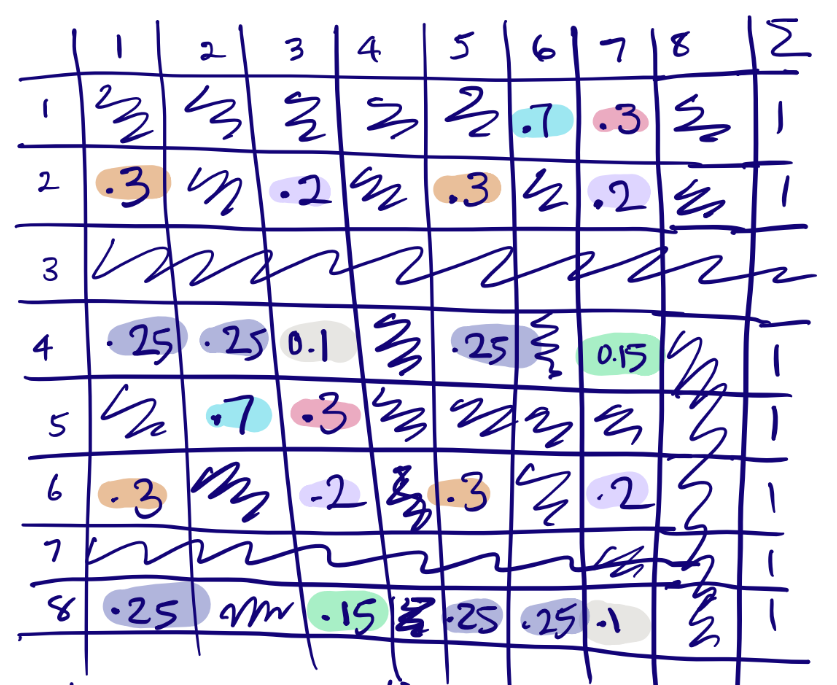 1 2 3 4 5 6 7 8 Σ
1 .7 .3 1
2 .3 .2 .3 .2 1
3
4 .25 .25 0.1 .25 0.15 1
5 .7 .3 1
6 .3 .2 .3 .2 1
7 1
8 .25 .15 .25 .25 .1 1